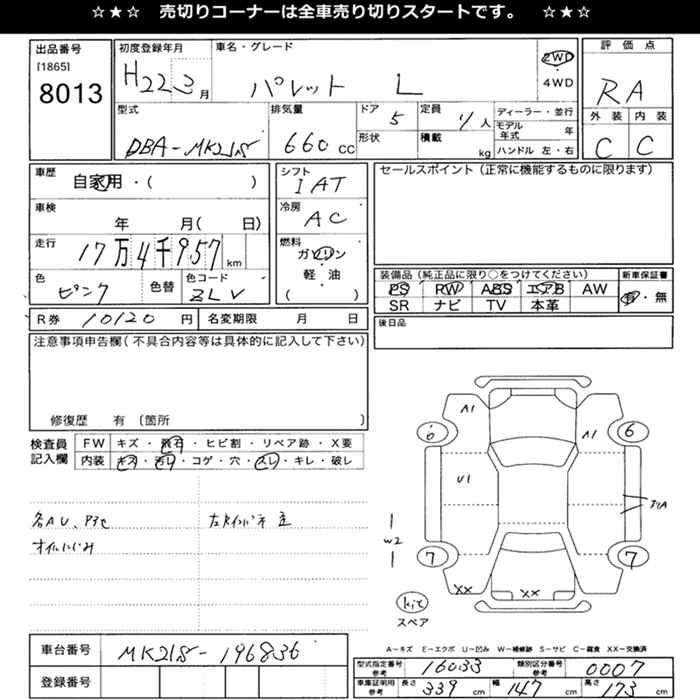 ☆★☆ 売切りコーナーは全車売り切りスタートです。 ☆★☆
出品番号 初度登録年月 車名・グレード 評価点
[1865] 8013 H22 3月 パレット L 2WD 4WD RA
型式 排気量 ドア 定員 ディーラー・並行 外装 内装
DBA-MK21S 660cc 5 人 モデル年式 年 C C
形状 積載 kg ハンドル 左・右
車歴 自家用・( ) シフト IAT セールスポイント(正常に機能するものに限ります)
車検 年 月( 日) 冷房 AC
走行 17万4千957km 燃料 ガソリン
軽・油
( )
色 ピンク 色替 色コード ZLV
装備品(純正品に限り○をつけてください) 新車保証書
PS PW ABS エアB AW 有・無
SR ナビ TV 本革
R券 10120円 名変期限 月 日 後日品
注意事項申告欄(不具合内容等は具体的に記入して下さい)
修復歴 有 〔箇所 〕
検査員記入欄 FW キズ・飛石・ヒビ割・リペア跡・X要
内装 キズ・汚レ・コゲ・穴・スレ・キレ・破レ
A1
A1
6 6
U1
W2
7 7
XX XX
kit
スペア
A-キズ E-エクボ U-凹み W-補修跡 S-サビ C-腐食 XX-交換済
車台番号 MK21S-196836
登録番号
型式指定番号 参考 16033 類別区分番号 参考 0007
車庫証明用 参考 長さ 339cm 幅 147cm 高さ 173cm